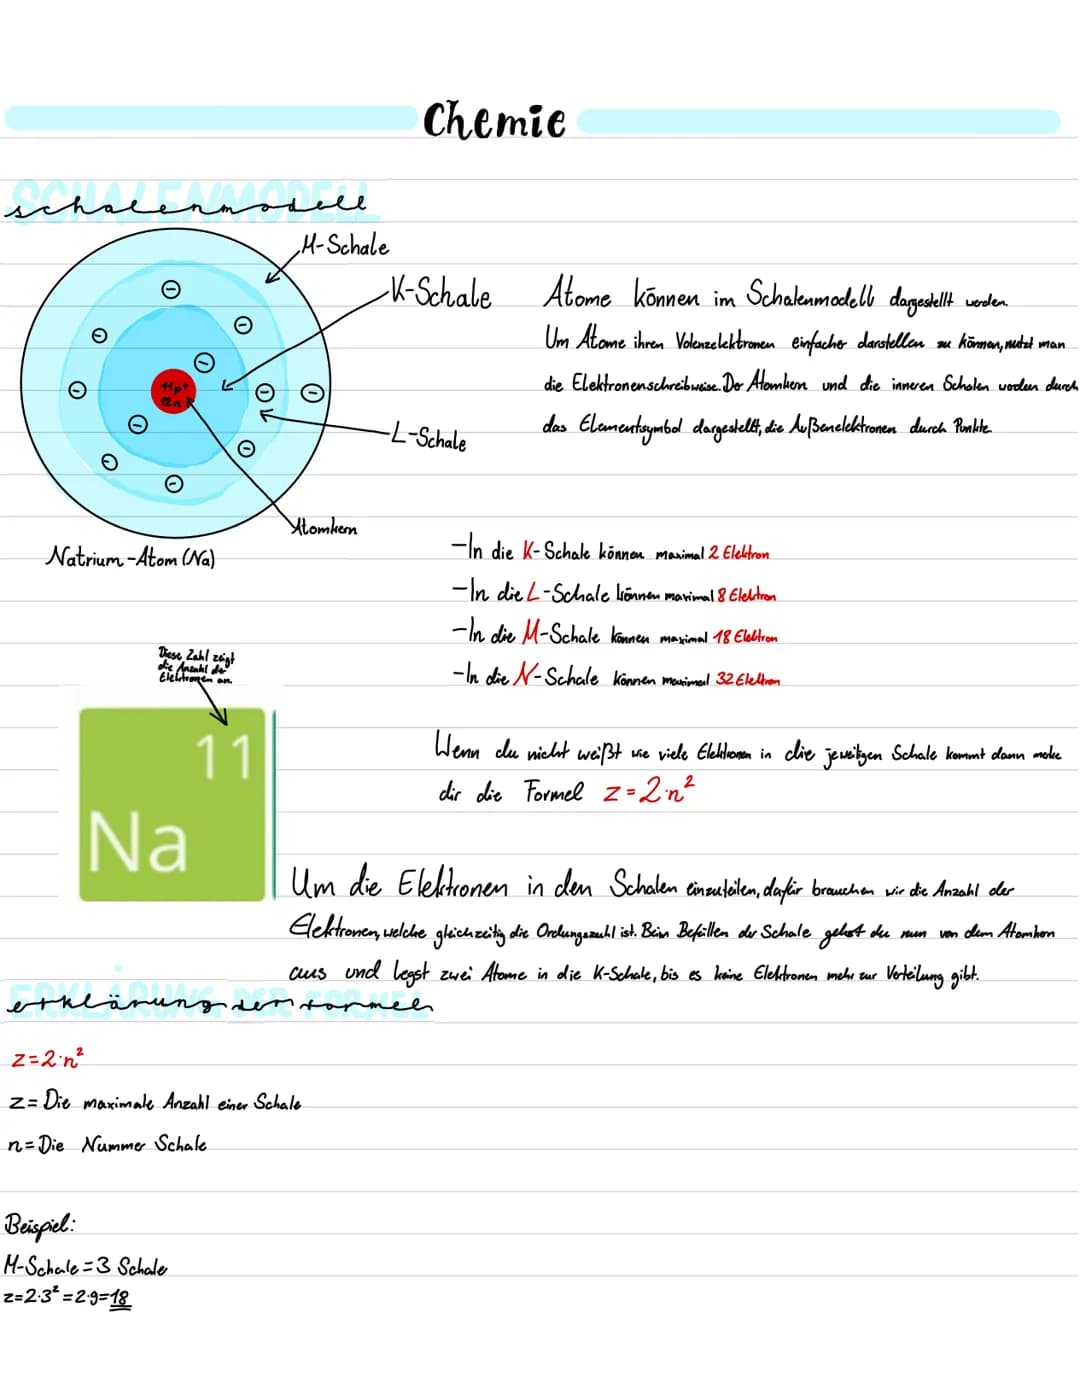 Chemie
SCHALENMODELL
schalenmodell
M-Schale
K-Schale
L-Schale
Atomkern
11p+
12n
Natrium-Atom (Na)
Atome können im Schalenmodell dargestellt werden.
Um Atome ihren Valenzelektronen einfacher darstellen zu können, nutzt man
die Elektronenschreibweise. Der Atomkern und die inneren Schalen werden durch
das Elementsymbol dargestellt, die Außenelektronen durch Punkte.
-In die K-Schale können maximal 2 Elektron
-In die L-Schale können maximal 8 Elektron
-In die M-Schale können maximal 18 Elektron
-In die N-Schale können maximal 32 Elektron
Diese Zahl zeigt
die Anzahl der
Elektronen an.
11
Na
Wenn du nicht weißt wie viele Elektronen in die jeweiligen Schale kommt dann
dir die Formel z=2·n²
Um die Elektronen in den Schalen einzuteilen, dafür brauchen wir die Anzahl der
Elektronen, welche gleichzeitig die Ordungszahl ist. Beim Befüllen der Schale gehst du nun von dem Atomkern
aus und legst zwei Atome in die K-Schale, bis es keine Elektronen mehr zur Verteilung gibt.
ERKLÄRUNG DER FORMEL
erklärung der formel
z=2·n²
z= Die maximale Anzahl einer Schale
n= Die Nummer Schale
Beispiel:
M-Schale=3 Schale
z=2·3²=2·9=18